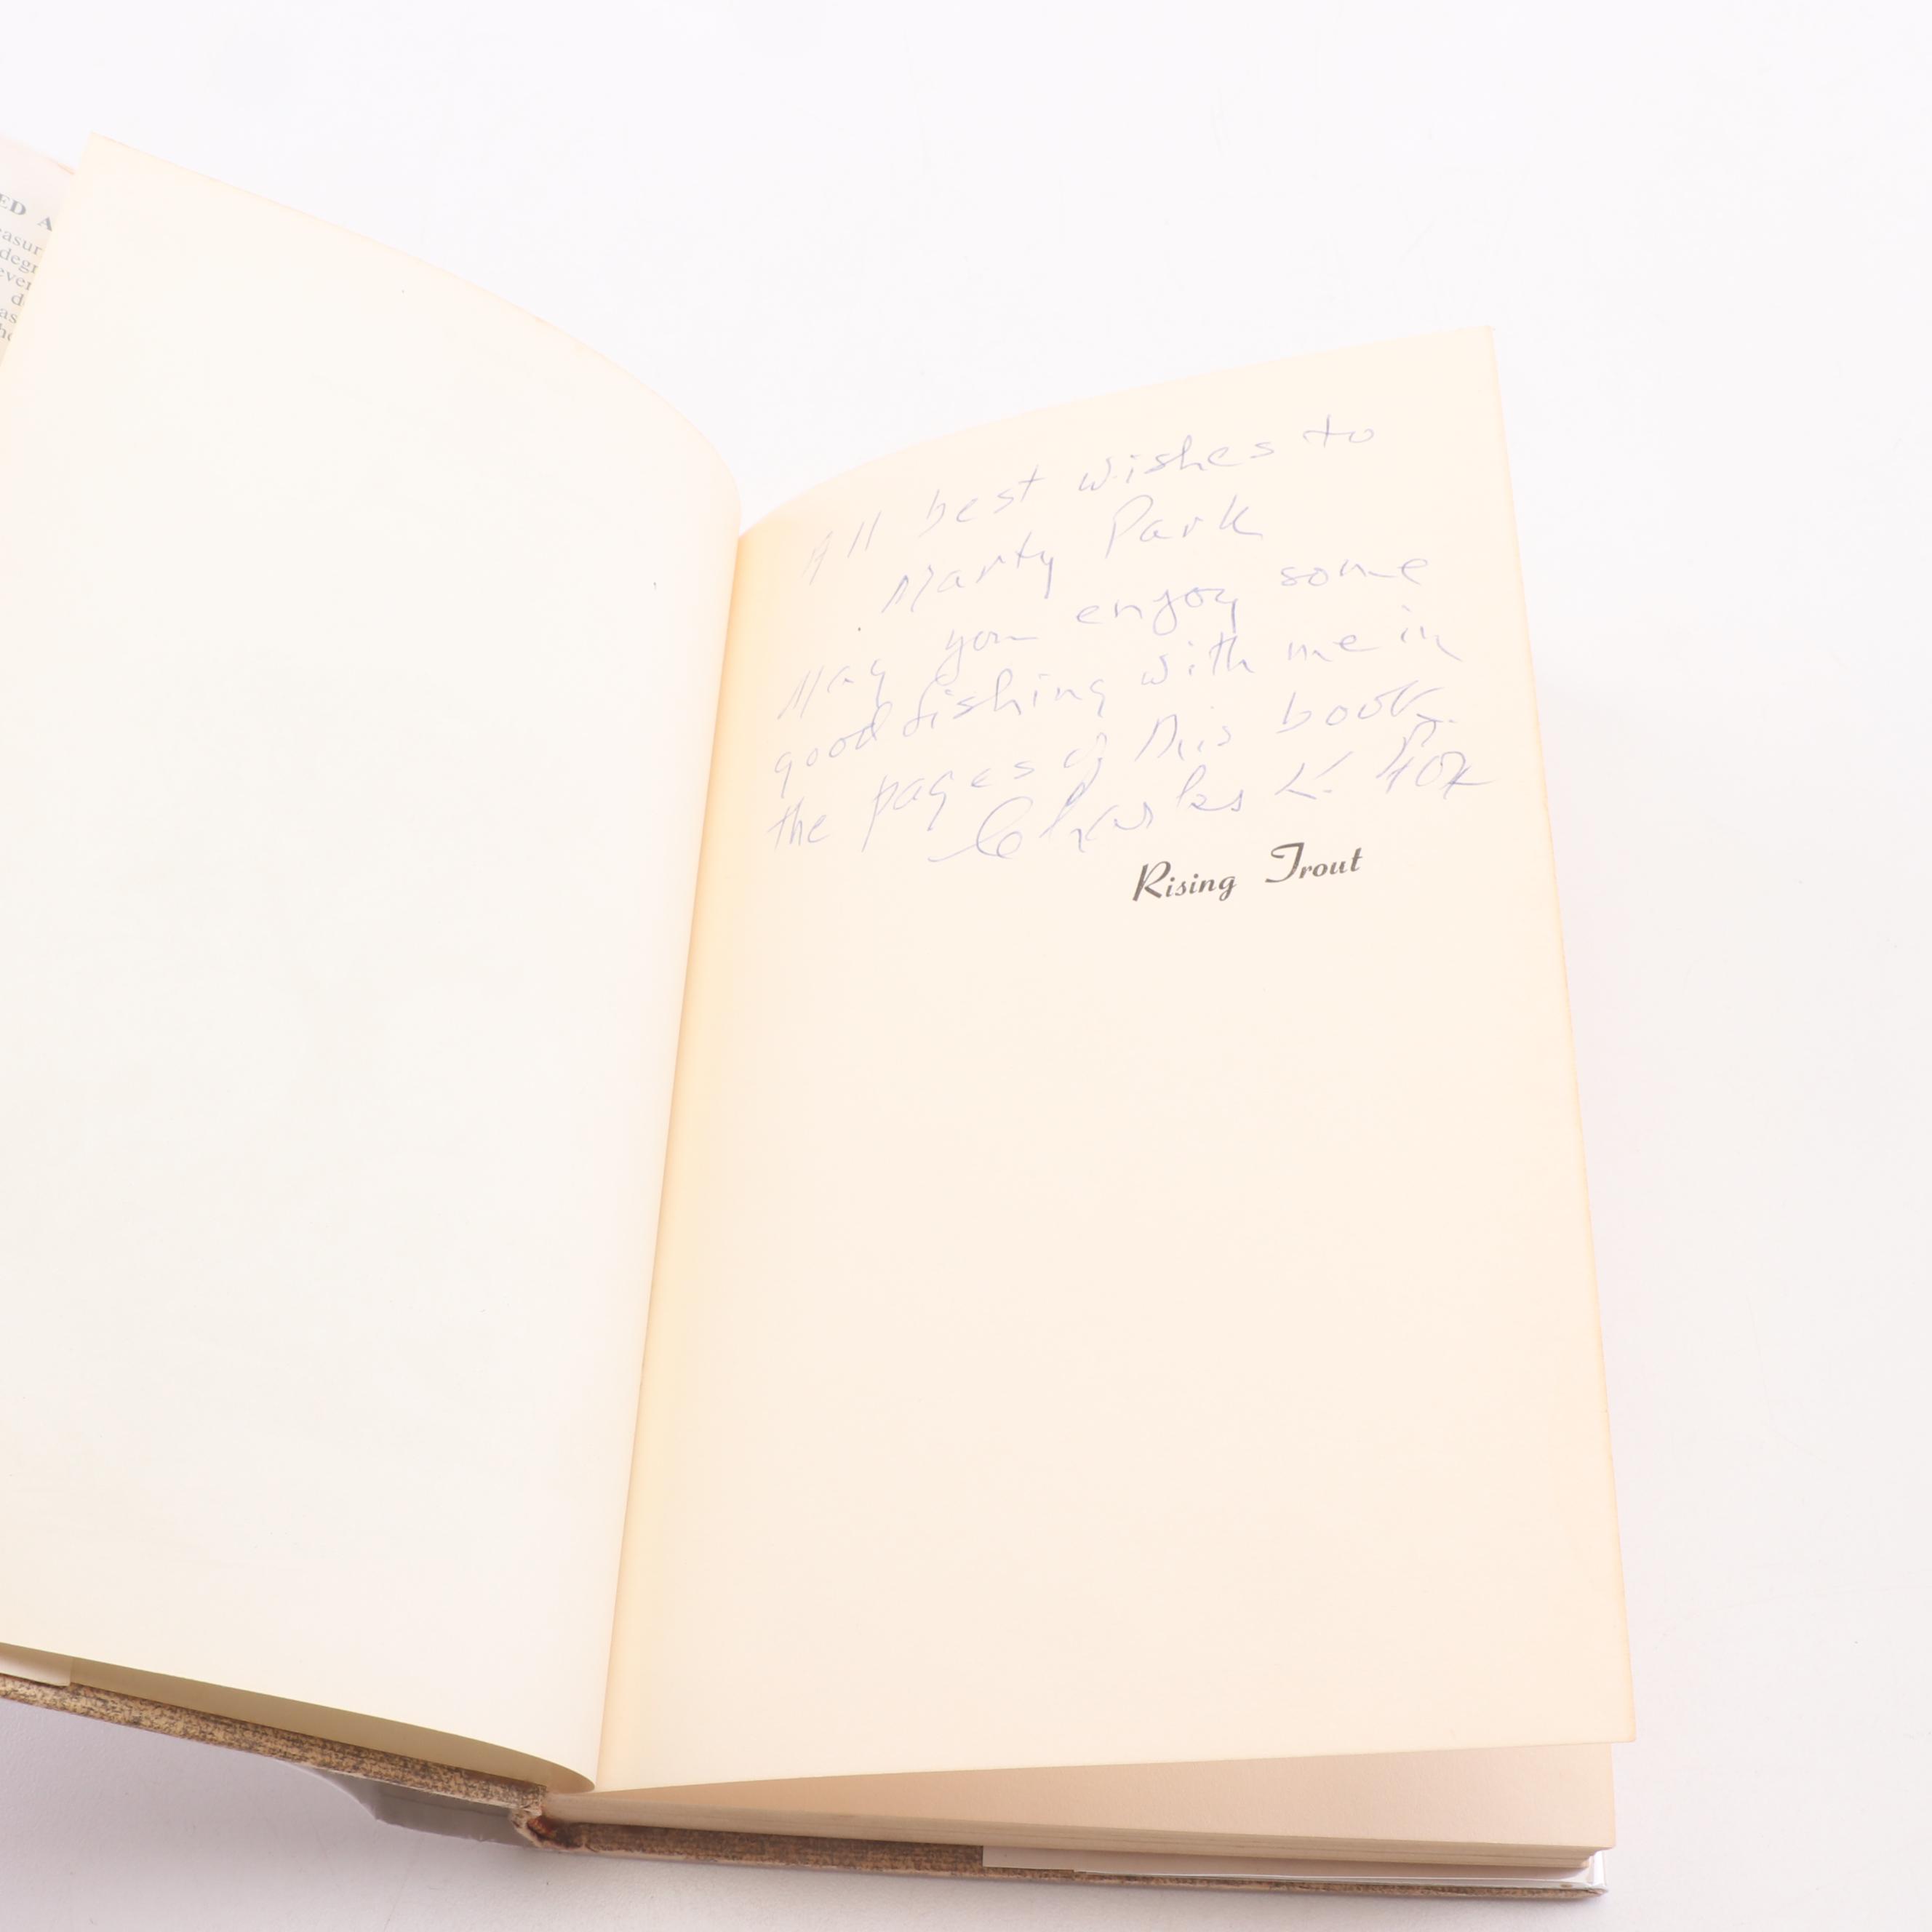 ED A
easur
degr
ever
d
as
he
All best wishes to
Marty Park
May you enjoy some
good fishing with me in
the pages of this book
Charles K. Fox
Rising Trout